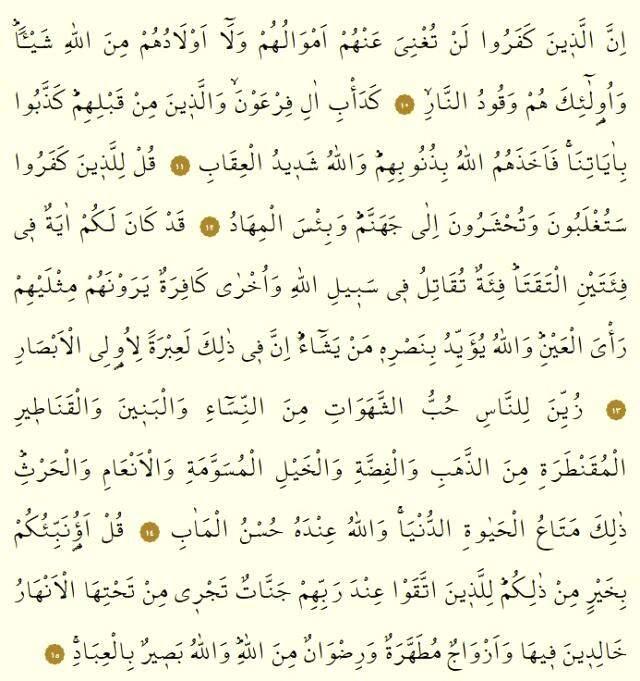 اِنَّ الَّذ۪ينَ كَفَرُوا لَنْ تُغْنِيَ عَنْهُمْ اَمْوَالُهُمْ وَلَٓا اَوْلَادُهُمْ مِنَ اللّٰهِ شَيْـًٔاۜ
وَاُو۬لٰٓئِكَ هُمْ وَقُودُ النَّارِۙ ﴿١٠﴾ كَدَأْبِ اٰلِ فِرْعَوْنَۙ وَالَّذ۪ينَ مِنْ قَبْلِهِمْۜ كَذَّبُوا
بِاٰيَاتِنَاۚ فَاَخَذَهُمُ اللّٰهُ بِذُنُوبِهِمْۜ وَاللّٰهُ شَد۪يدُ الْعِقَابِ ﴿١١﴾ قُلْ لِلَّذ۪ينَ كَفَرُوا
سَتُغْلَبُونَ وَتُحْشَرُونَ اِلٰى جَهَنَّمَۜ وَبِئْسَ الْمِهَادُ ﴿١٢﴾ قَدْ كَانَ لَكُمْ اٰيَةٌ ف۪ي
فِئَتَيْنِ الْتَقَتَاۜ فِئَةٌ تُقَاتِلُ ف۪ي سَب۪يلِ اللّٰهِ وَاُخْرٰى كَافِرَةٌ يَرَوْنَهُمْ مِثْلَيْهِمْ
رَأْيَ الْعَيْنِۜ وَاللّٰهُ يُؤَيِّدُ بِنَصْرِه۪ مَنْ يَشَٓاءُۜ اِنَّ ف۪ي ذٰلِكَ لَعِبْرَةً لِاُو۬لِي الْاَبْصَارِ
﴿١٣﴾ زُيِّنَ لِلنَّاسِ حُبُّ الشَّهَوَاتِ مِنَ النِّسَٓاءِ وَالْبَن۪ينَ وَالْقَنَاط۪يرِ
الْمُقَنْطَرَةِ مِنَ الذَّهَبِ وَالْفِضَّةِ وَالْخَيْلِ الْمُسَوَّمَةِ وَالْاَنْعَامِ وَالْحَرْثِۜ
ذٰلِكَ مَتَاعُ الْحَيٰوةِ الدُّنْيَاۚ وَاللّٰهُ عِنْدَهُ حُسْنُ الْمَاٰبِ ﴿١٤﴾ قُلْ اَؤُ۬نَبِّئُكُمْ
بِخَيْرٍ مِنْ ذٰلِكُمْۜ لِلَّذ۪ينَ اتَّقَوْا عِنْدَ رَبِّهِمْ جَنَّاتٌ تَجْر۪ي مِنْ تَحْتِهَا الْاَنْهَارُ
خَالِد۪ينَ ف۪يهَا وَاَزْوَاجٌ مُطَهَّرَةٌ وَرِضْوَانٌ مِنَ اللّٰهِۜ وَاللّٰهُ بَص۪يرٌ بِالْعِبَادِۚ ﴿١٥﴾